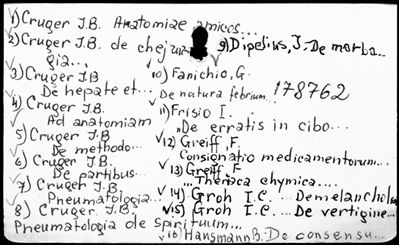 1) Cruger J.B. Anatomiae amicos...
2) Cruger J.B. de chejur-
gia...
3) Cruger J.B
De hepate et...
4) Cruger J.B.
Ad anatomiam
5) Cruger J.B
De methodo...
6) Cruger J.B.
De partibus...
7) Cruger J.B.
Pneumatologia...
8) Cruger J.B.
Pneumatologia de Spirituum...
9) Dipelius, J. De morbo..
10) Fanichio, G.
De natura febrium...
178762
11) Frisio I.
De erratis in cibo...
12) Greiff, F.
Consignatio medicamentorum...
13) Greiff F.
Theriaca chymica...
14) Groh I.C. De melancholia
15) Groh I.C. ... De vertigine...
16) Hansmann B. De consensu...